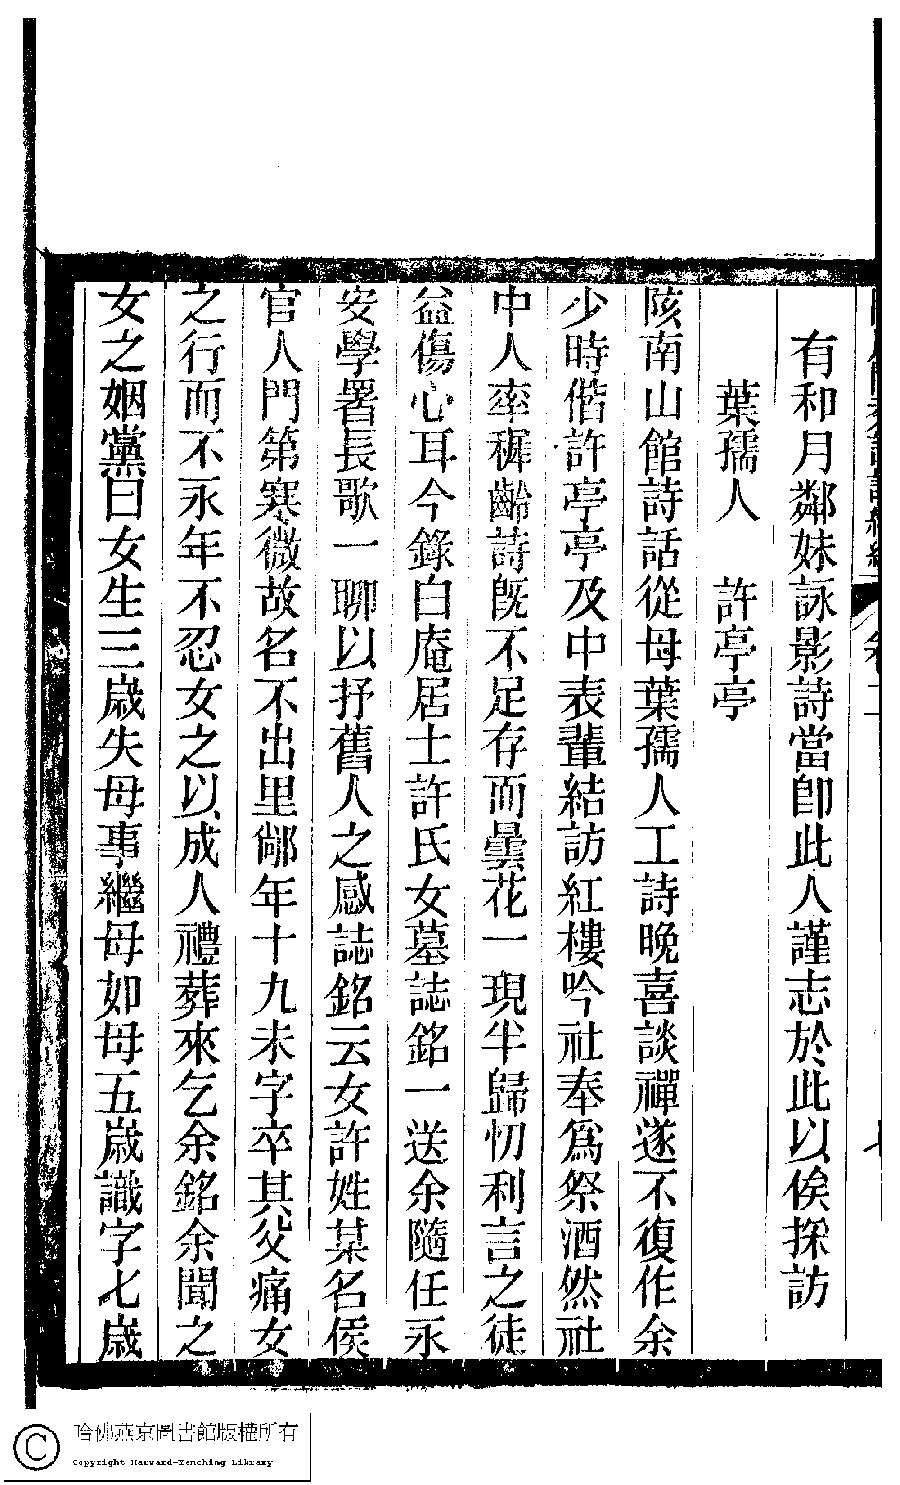 有和月鄰妹詠影詩當卽此人謹志於此以俟採訪
葉孺人　許亭亭
陔南山館詩話從母葉孺人工詩晚喜談禪遂不復作余
少時偕許亭亭及中表輩結訪紅樓吟社奉爲祭酒然社
中人率穉齡詩旣不足存而曇花一現半歸忉利言之徒
益傷心耳今錄白庵居士許氏女墓誌銘一送余隨任永
安學署長歌一聊以抒舊人之感誌銘云女許姓某名侯
官人門第寒微故名不出里鄰年十九未字卒其父痛女
之行而不永年不忍女之以成人禮葬來乞余銘余聞之
女之姻黨曰女生三歲失母事繼母如母五歲識字七歲
哈佛燕京圖書館版權所有
Copyright Harvard-Yenching Library